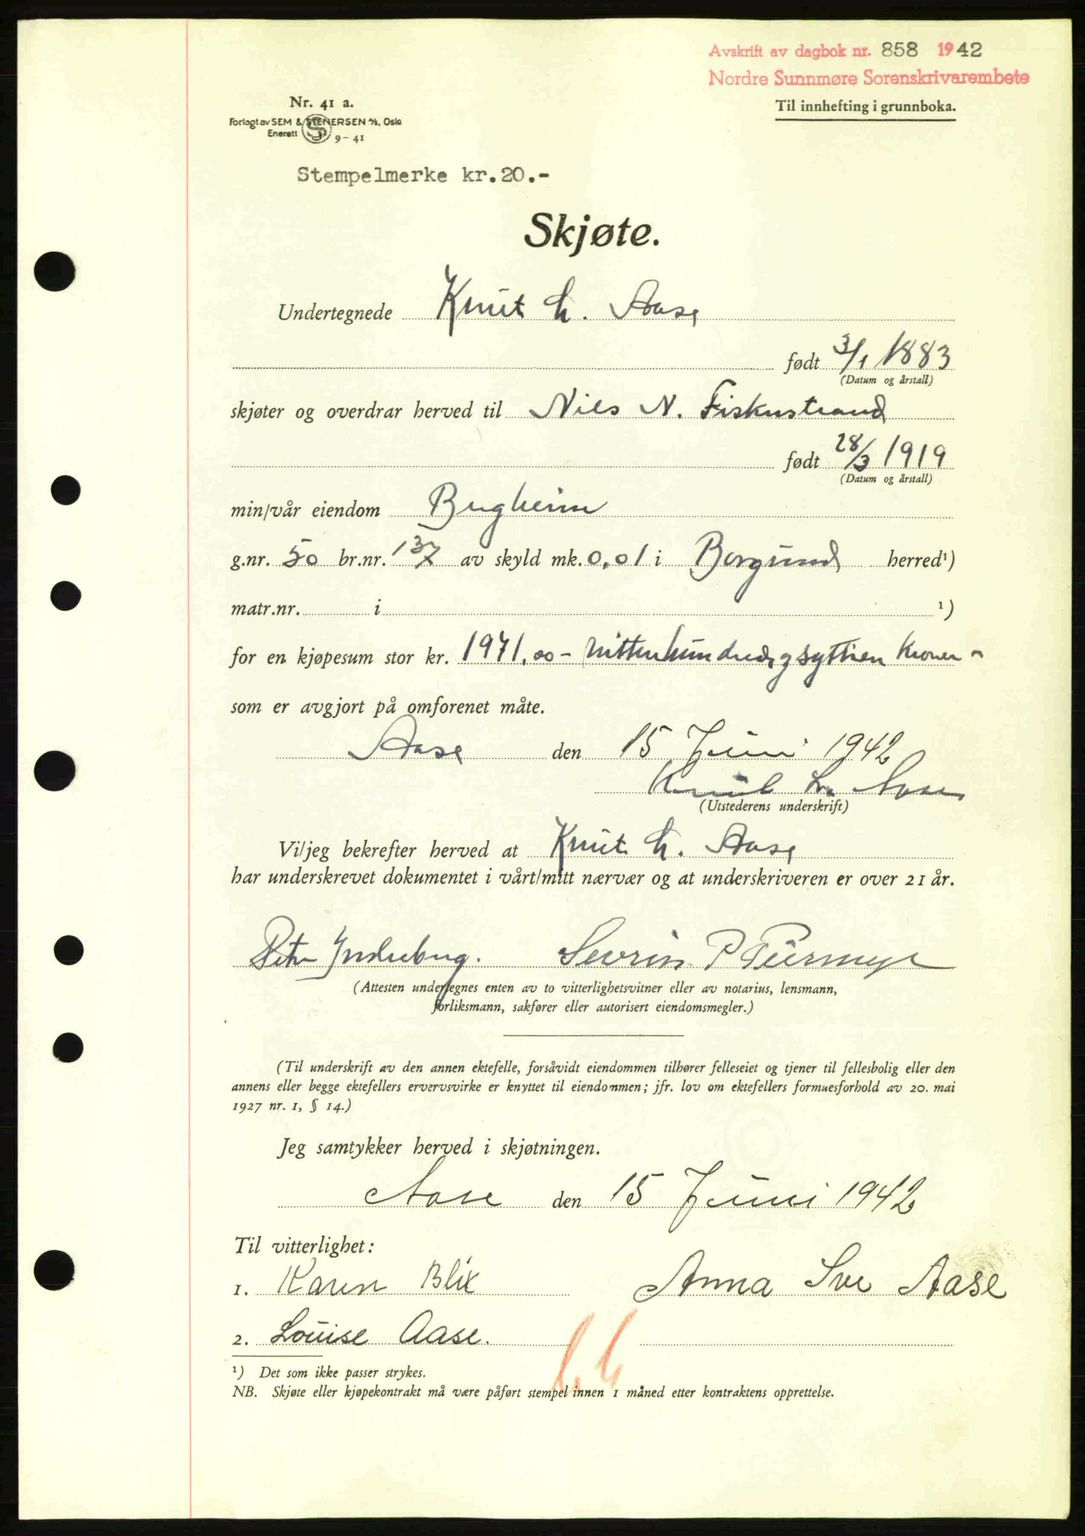 Avskrift av dagbok nr. 858 1942
Nordre Sunnmøre Sorenskrivarembete
Til innhefting i grunnboka.
Nr. 41 a.
Forlagt av SEM & STENERSEN A/S, Oslo
Enerett 9-41
Stempelmerke kr.20.-
Skjøte.
Undertegnede Knut L. Aase
født 3/1 1883
(Datum og årstall)
skjøter og overdrar herved til Nils N. Fiskustrand
født 28/3 1919
(Datum og årstall)
min/vår eiendom Bugheim
g.nr. 50 br.nr. 137 av skyld mk. 0,01 i Borgund herred¹)
matr.nr. i ¹)
for en kjøpesum stor kr. 1971,00 - Kroner -
som er avgjort på omforenet måte.
Aase den 15 Juni 1942
Knut L. Aase
(Utstederens underskrift)
Vi/jeg bekrefter herved at Knut L. Aase
har underskrevet dokumentet i vårt/mitt nærvær og at underskriveren er over 21 år.
Petr Indrebug. Sevrin P
(Attesten undertegnes enten av to vitterlighetsvitner eller av notarius, lensmann,
forliksmann, sakfører eller autorisert eiendomsmegler.)
(Til underskrift av den annen ektefelle, forsåvidt eiendommen tilhører felleseiet og tjener til fellesbolig eller den
annens eller begge ektefellers ervervsvirke er knyttet til eiendommen; jfr. lov om ektefellers formuesforhold av 20. mai
1927 nr. 1, § 14.)
Jeg samtykker herved i skjøtningen.
Aase den 15 Juni 1942
Til vitterlighet:
1. Karen Blix Anna Sve Aase
2. Louise Aase.
¹) Det som ikke passer strykes.
NB. Skjøte eller kjøpekontrakt må være påført stempel innen 1 måned etter kontraktens opprettelse.